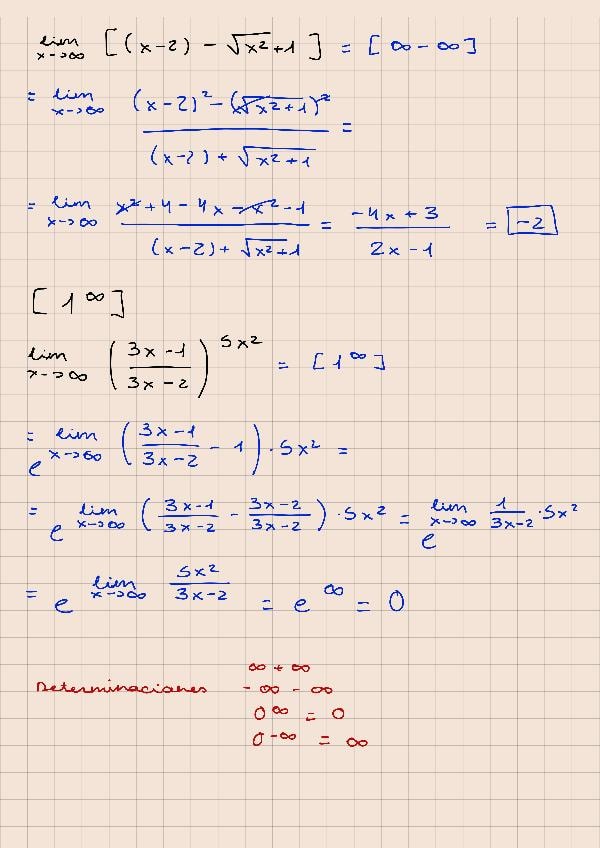 lim x→∞ [(x-2) - √x²+1] = [∞-∞]
= lim x→∞ ((x-2)² - (√x²+1)²) / ((x-2) + √x²+1) =
= lim x→∞ (x² + 4 - 4x - x² - 1) / ((x-2) + √x²+1) = (-4x + 3) / (2x - 1) = -2
[1^∞]
lim x→∞ ((3x-1) / (3x-2))^(5x²) = [1^∞]
= e^(lim x→∞ ((3x-1) / (3x-2) - 1) · 5x²) =
= e^(lim x→∞ ((3x-1) / (3x-2) - (3x-2) / (3x-2)) · 5x²) = e^(lim x→∞ 1 / (3x-2) · 5x²)
= e^(lim x→∞ 5x² / (3x-2)) = e^∞ = 0
∞ + ∞
Determinaciones - ∞ - ∞
0^∞ = 0
0^-∞ = ∞